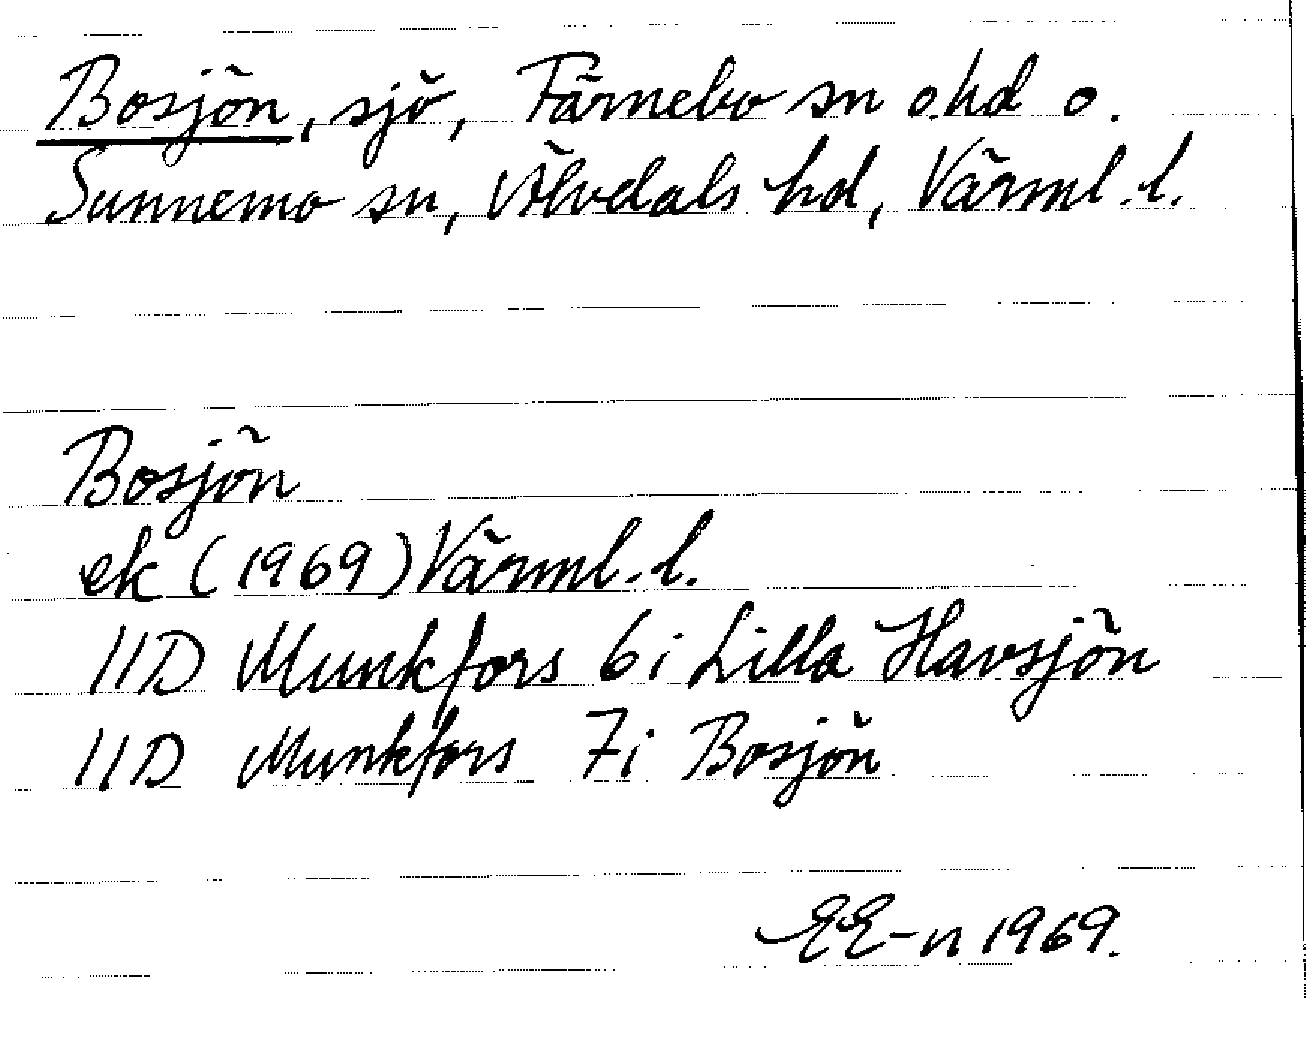 Bosjön, sjö, Färnebo sn o.hd o.
Sunnemo sn, Älvdals hd, Värml.l.
Bosjön
ek (1969) Värml.l.
11D Munkfors 6i Lilla Havsjön
11D Munkfors 7i Bosjön
EE-n 1969.